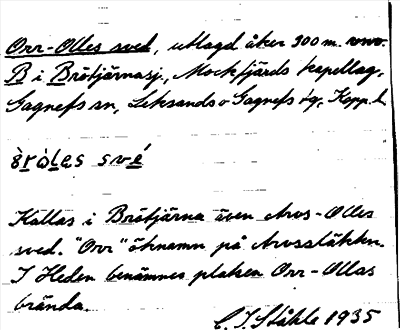 Orr-Olles sved, utlagd åker 300 m. vnv.
B i Brötjärnasj., Mockfjärds kapellag,
Gagnefs sn, Leksands o Gagnefs tg, Kopp. l.
òròles své
Kallas i Brötjärna även Aros-Olles
sved. "Orr" öknamn på Arossläkten.
I Heden benämnes platsen Orr-Ollas
brända.
C. I. Ståhle 1935